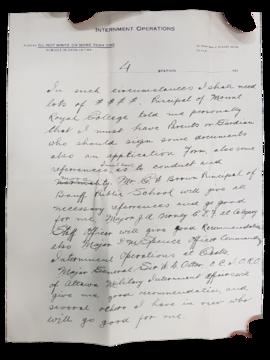 INTERNMENT OPERATIONS
PLEASE DO NOT WRITE ON MORE THAN ONE
4
STATION
In such circumstances I shall need
lots of $ $ $ $. Principal of Mount
Royal College told me personally
that I must have Parents or Gardian
who should sign some documents
also an application Form, also some
references as to conduct and
morality. Mr. Brown Principal of
Banff Public School will give all
necessary references and go good
for me, Major at Calgary
Staff Officer will give good Recommendation
also Major Officer Commanding
Internment Operations at
Major General Otter
of Ottawa Military Internment
give me good recommendation, and
several others I have in view who
will go good for me.